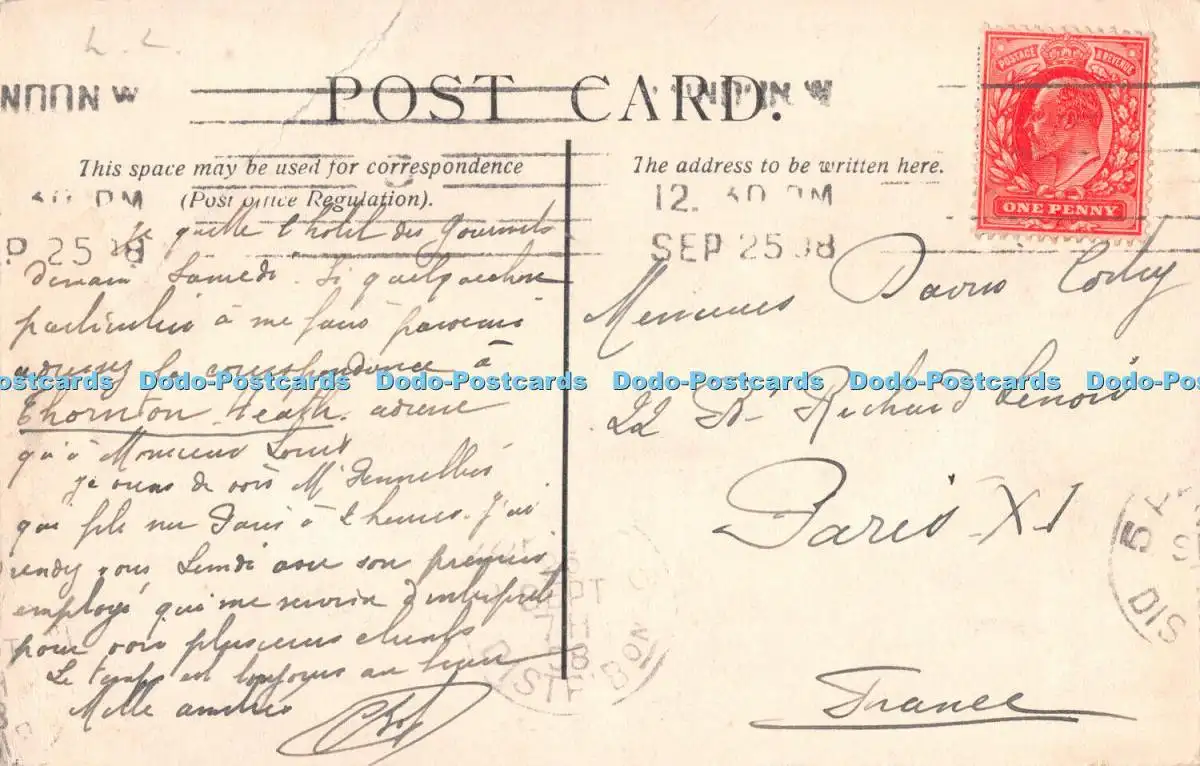 L. L.
LONDON W
POST CARD.
This space may be used for correspondence
(Post Office Regulation).
The address to be written here.
POSTAGE & REVENUE
ONE PENNY
12. 30 PM
SEP 25 08
P 25 08
je quitte l'hotel des Gourmets
demain Samedi. Si quelquechose
particulier à me faire parvenir
adressez la correspondance à
Thornton Heath. adresse
qu'à Monsieur Louis
je viens de voir Mr
qui file sur Paris à 2 heures. J'ai
rendez vous Lundi avec son premier
employé qui me servira d'interprète
pour voir plusieurs clients
Le temps est toujours au beau
Mille amitiés
Messieurs
22 Bd Richard Lenoir
Paris XI
France
DISTRIBON
Dodo-Postcards Dodo-Postcards Dodo-Postcards Dodo-Postcards Dodo-Postcards